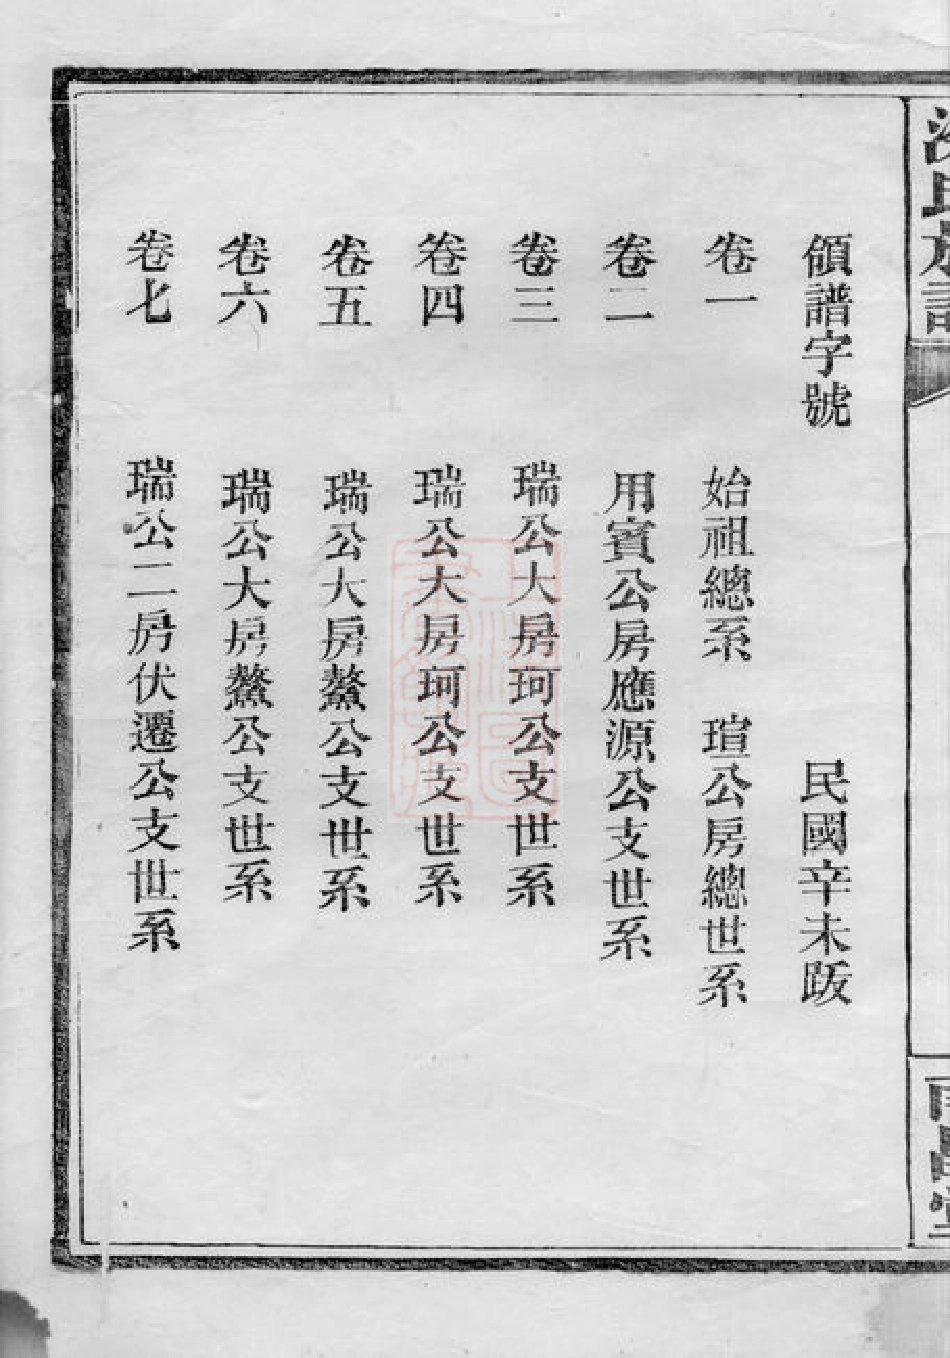 領譜字號 民國辛未跋
卷一 始祖總系 瑄公房總世系
卷二 用賓公房應源公支世系
卷三 瑞公大房珂公支世系
卷四 瑞公大房珂公支世系
卷五 瑞公大房鰲公支世系
卷六 瑞公大房鰲公支世系
卷七 瑞公二房伏遷公支世系